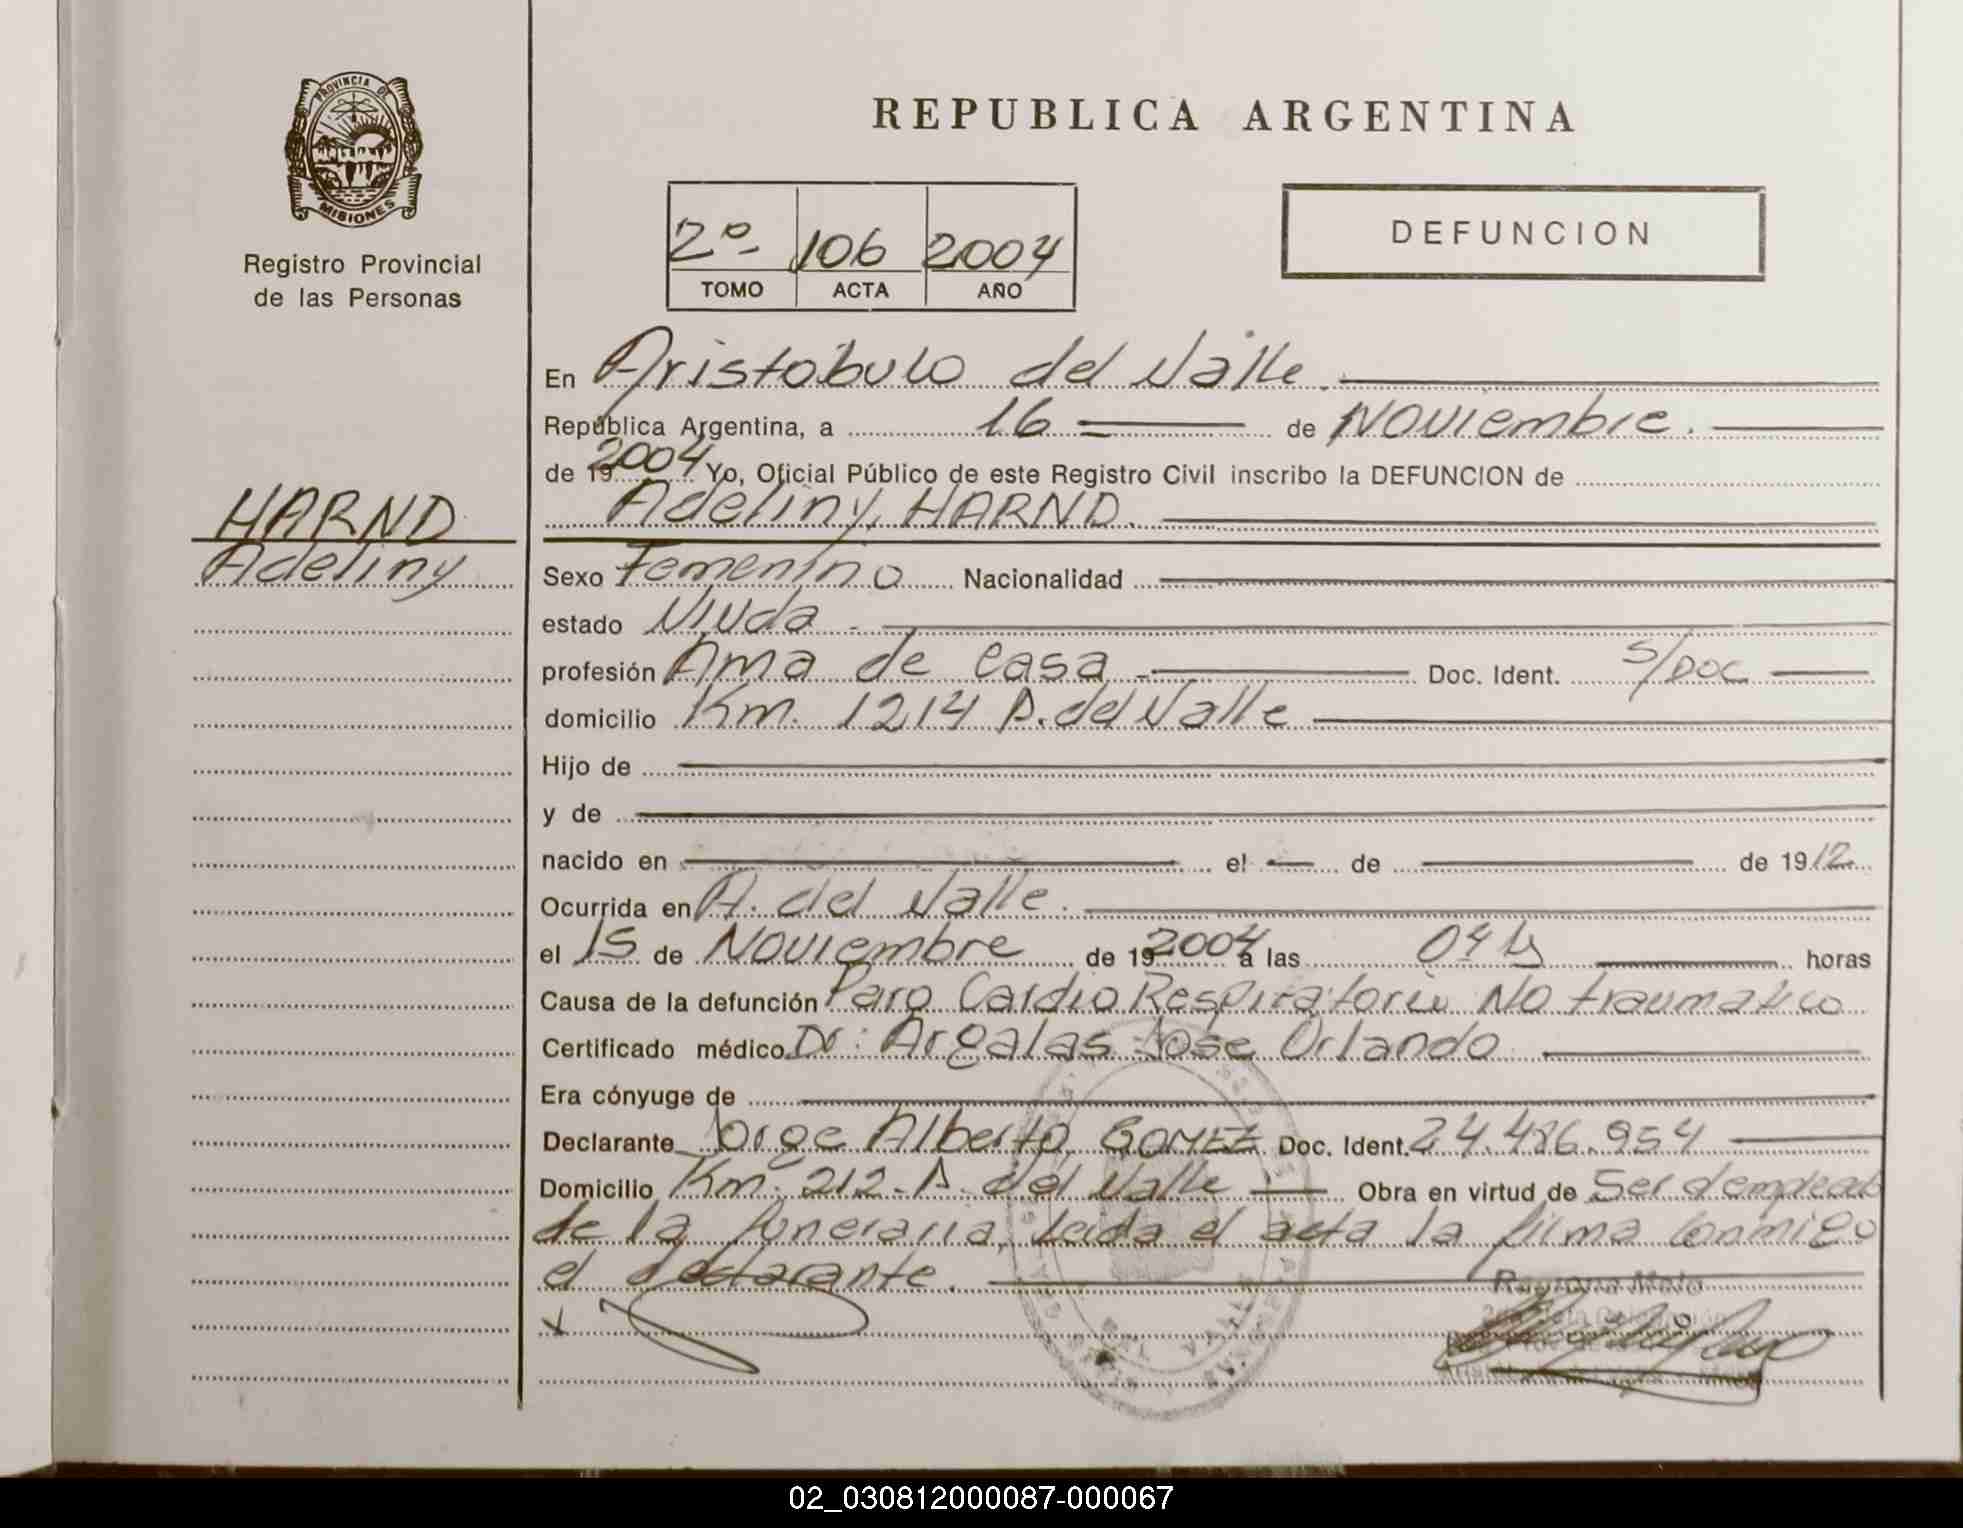 PROVINCIA DE
MISIONES
Registro Provincial
de las Personas
REPUBLICA ARGENTINA
2º- 106 2004
TOMO ACTA AÑO
DEFUNCION
En Aristóbulo del Valle.
República Argentina, a 16 = de Noviembre.
de 19 2004 Yo, Oficial Público de este Registro Civil inscribo la DEFUNCION de
Adeliny, HARND.
HARND
Adeliny
Sexo Femenino Nacionalidad
estado Viuda -
profesión Ama de casa - Doc. Ident. S/DOC
domicilio Km. 1214 A. del Valle
Hijo de
y de
nacido en el de de 1912
Ocurrida en A. del Valle.
el 15 de Noviembre de 19 2004 a las 04 horas
Causa de la defunción Paro Cardio Respiratorio No traumatico
Certificado médico Dr: Argalas Jose Orlando
Era cónyuge de
Declarante Jorge Alberto GOMEZ Doc. Ident. 24.486.954
Domicilio Km. 212 - A. del Valle Obra en virtud de Ser d empleado
de la funeraria, Leida el acta la firma conmigo
el declarante.
x
02_030812000087-000067